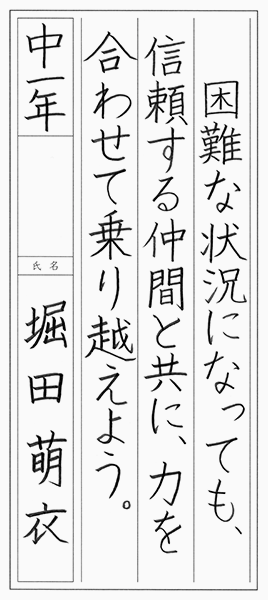 困難な状況になっても、
信頼する仲間と共に、力を
合わせて乗り越えよう。
中一年
氏名
堀田萌衣